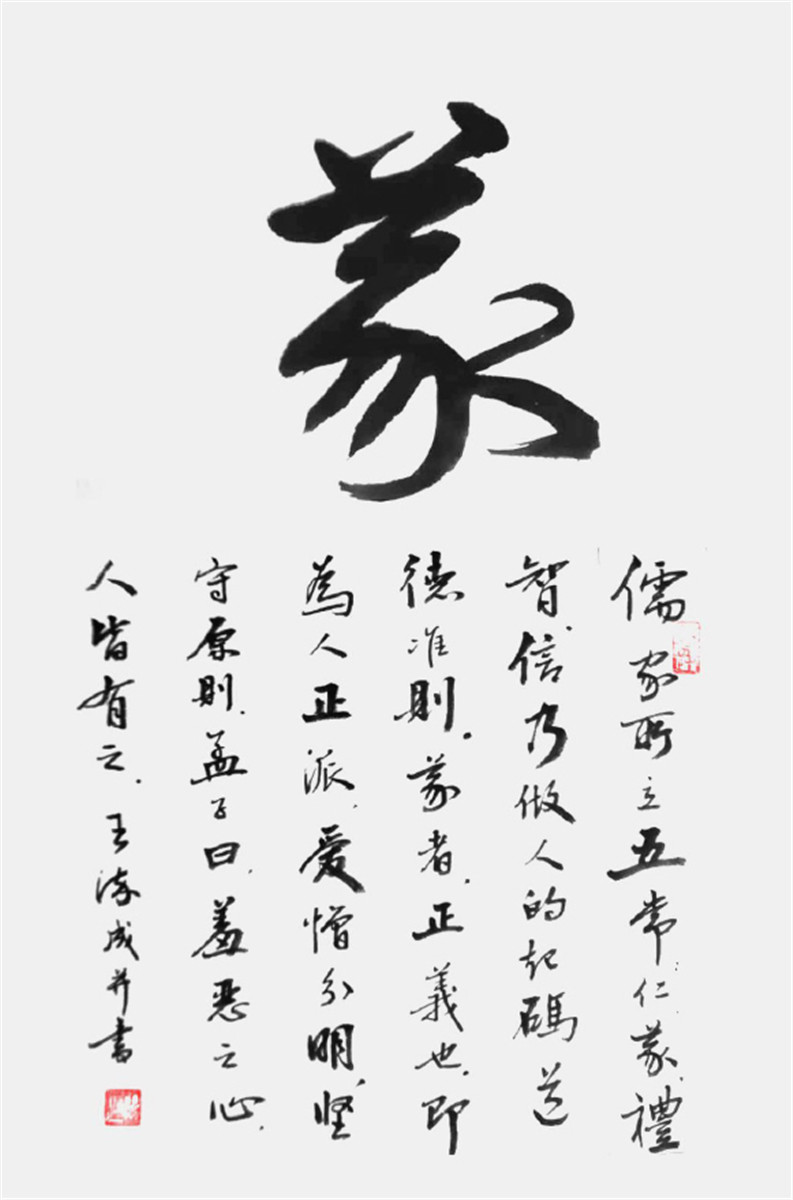 義
儒家所立五常:仁、義、禮、
智、信乃做人的起碼道
德准則。義者,正義也,即
為人正派,爱憎分明,坚
守原則。孟子曰,羞惡之心,
人皆有之。王海成并書